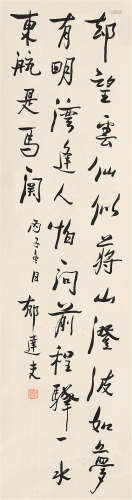 却望雲仙似蔣山澄波如夢
有明灣逢人怕問前程驛一水
東航是馬關
丙子冬日
郁達夫